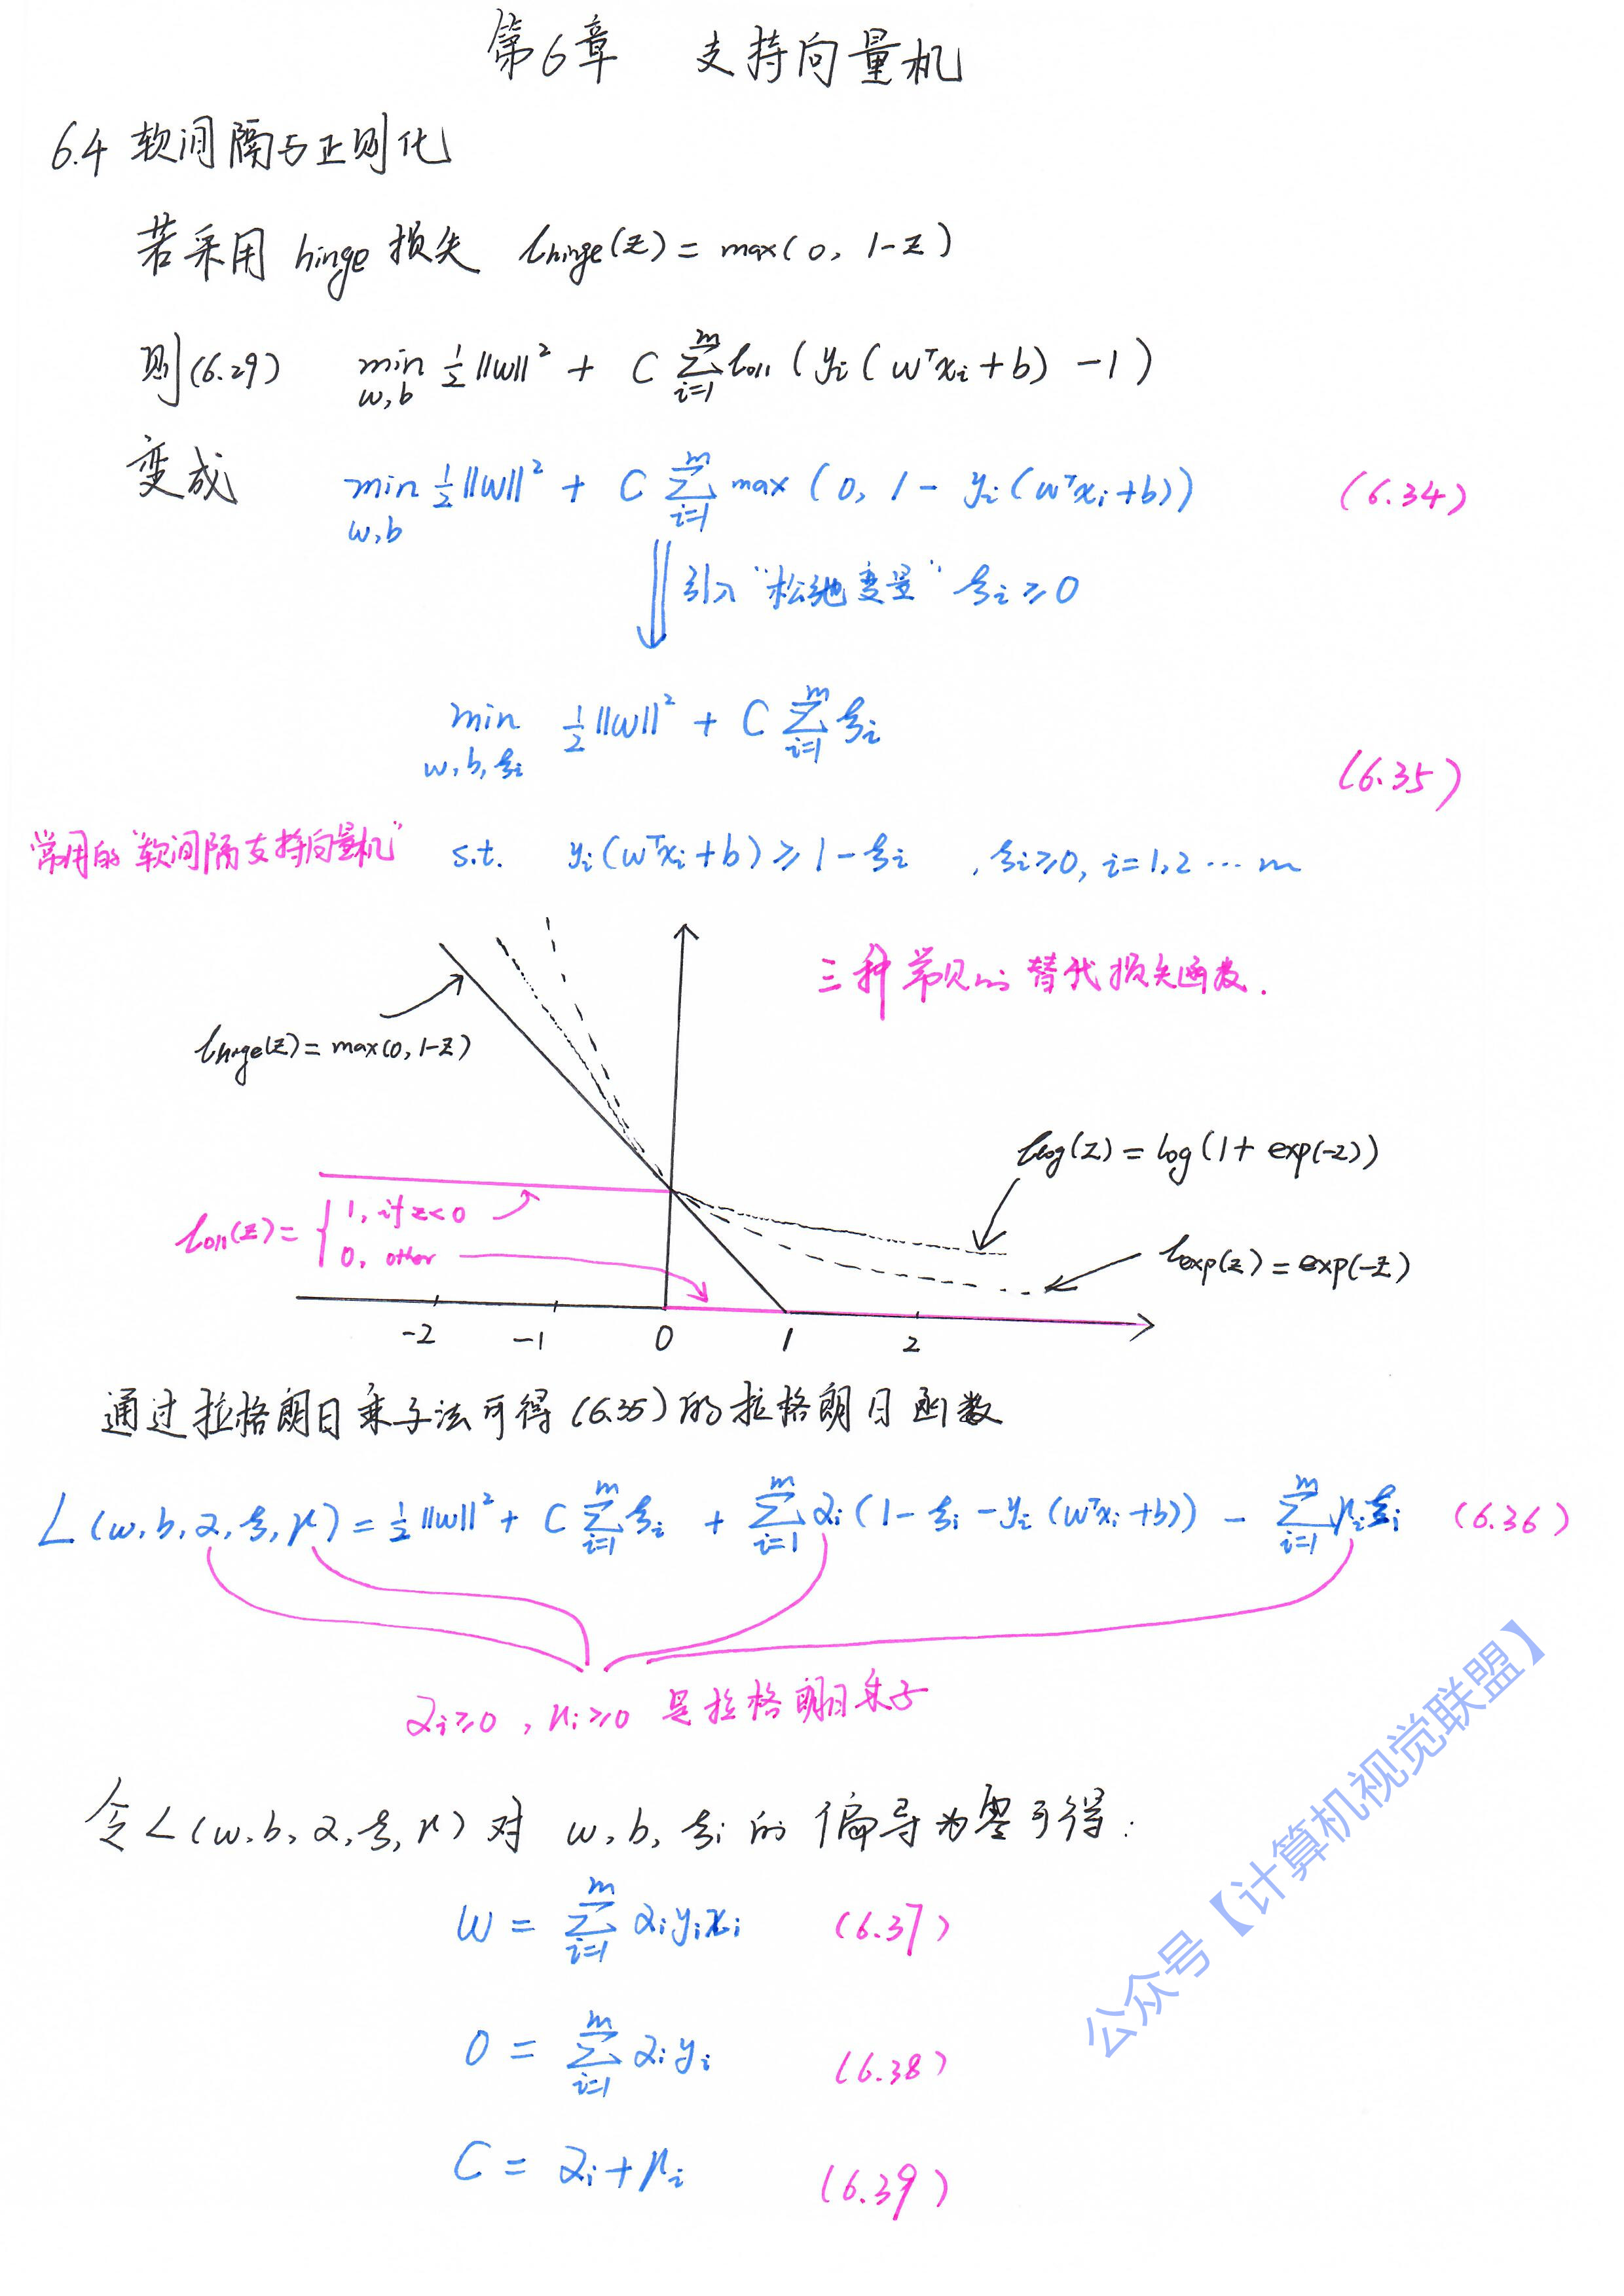 第6章 支持向量机
6.4 软间隔与正则化
若采用 hinge 损失 ℓhinge(z) = max(0, 1-z)
则(6.29) min w,b ½||w||² + C ∑_{i=1}^{m} ℓ0/1 (yi(wᵀxi+b) -1)
变成 min w,b ½||w||² + C ∑_{i=1}^{m} max (0, 1 - yi(wᵀxi+b)) (6.34)
引入 "松弛变量" ξi ≥ 0
min w,b,ξi ½||w||² + C ∑_{i=1}^{m} ξi
(6.35)
常用的"软间隔支持向量机" s.t. yi(wᵀxi+b) ≥ 1-ξi , ξi≥0, i=1,2 ⋯ m
三种常见的替代损失函数.
ℓhinge(z) = max(0, 1-z)
ℓlog(z) = log(1+ exp(-z))
ℓ0/1(z) = { 1, if z<0
0, other
ℓexp(z) = exp(-z)
-2 -1 0 1 2
通过拉格朗日乘子法可得(6.35)的拉格朗日函数
L(w,b,α,ξ,μ) = ½||w||² + C ∑_{i=1}^{m} ξi + ∑_{i=1}^{m} αi(1-ξi-yi(wᵀxi+b)) - ∑_{i=1}^{m} μiξi (6.36)
αi≥0 , μi≥0 是拉格朗日乘子
令L(w,b,α,ξ,μ)对 w,b,ξi的偏导为零可得:
w = ∑_{i=1}^{m} αiyixi (6.37)
0 = ∑_{i=1}^{m} αiyi (6.38)
C = αi+μi (6.39)
公众号【计算机视觉联盟】